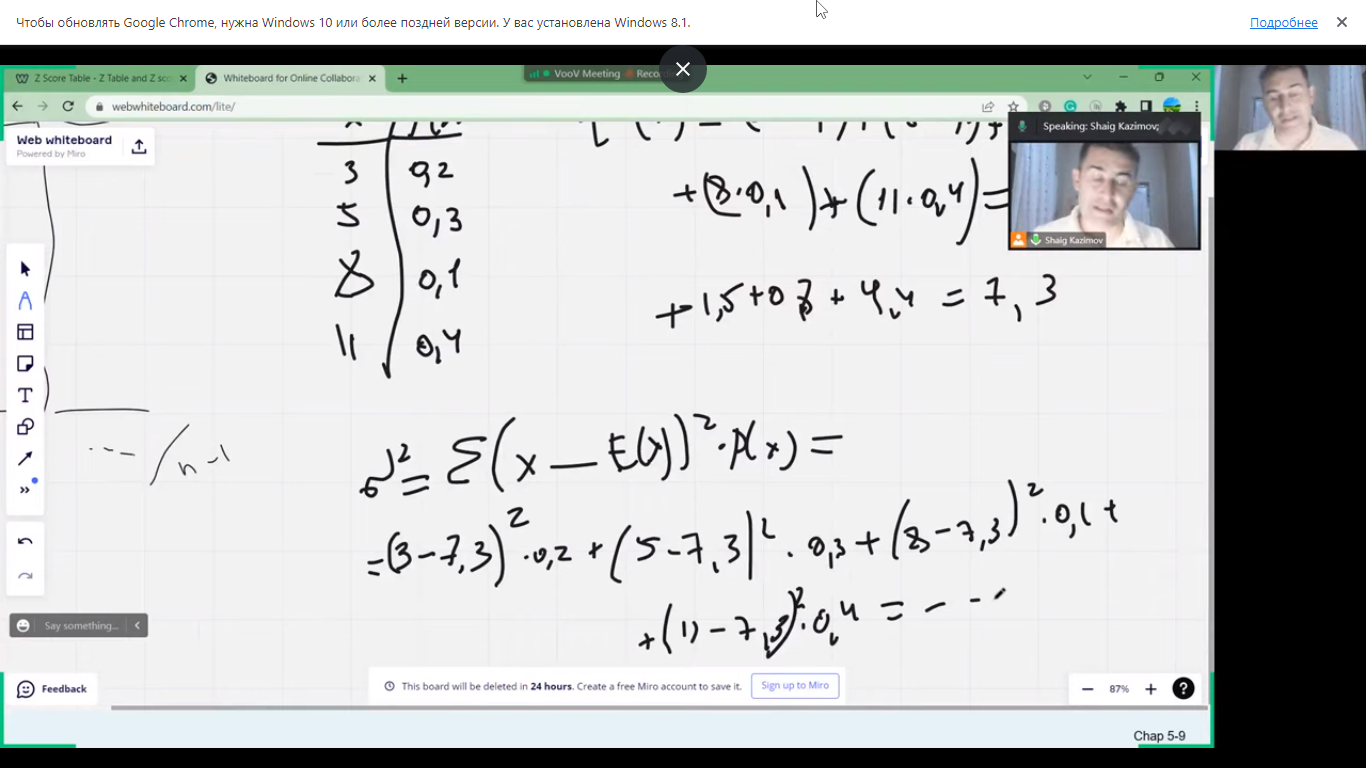 Чтобы обновлять Google Chrome, нужна Windows 10 или более поздней версии. У вас установлена Windows 8.1.
Подробнее
Z Score Table - Z Table and Z sco
Whiteboard for Online Collabora
VooV Meeting
Recor
webwhiteboard.com/lite/
Web whiteboard
Powered by Miro
Speaking: Shaig Kazimov;
Shaig Kazimov
3 0,2
5 0,3
8 0,1
11 0,4
+(8·0,1)+(11·0,4)=
+1,5+0,8+4,4=7,3
--- /n-1
σ²=Σ(x-E(x))²·P(x)=
=(3-7,3)²·0,2+(5-7,3)²·0,3+(8-7,3)²·0,1+
+(11-7,3)²·0,4=---
Say something...
Feedback
This board will be deleted in 24 hours. Create a free Miro account to save it.
Sign up to Miro
87%
Chap 5-9